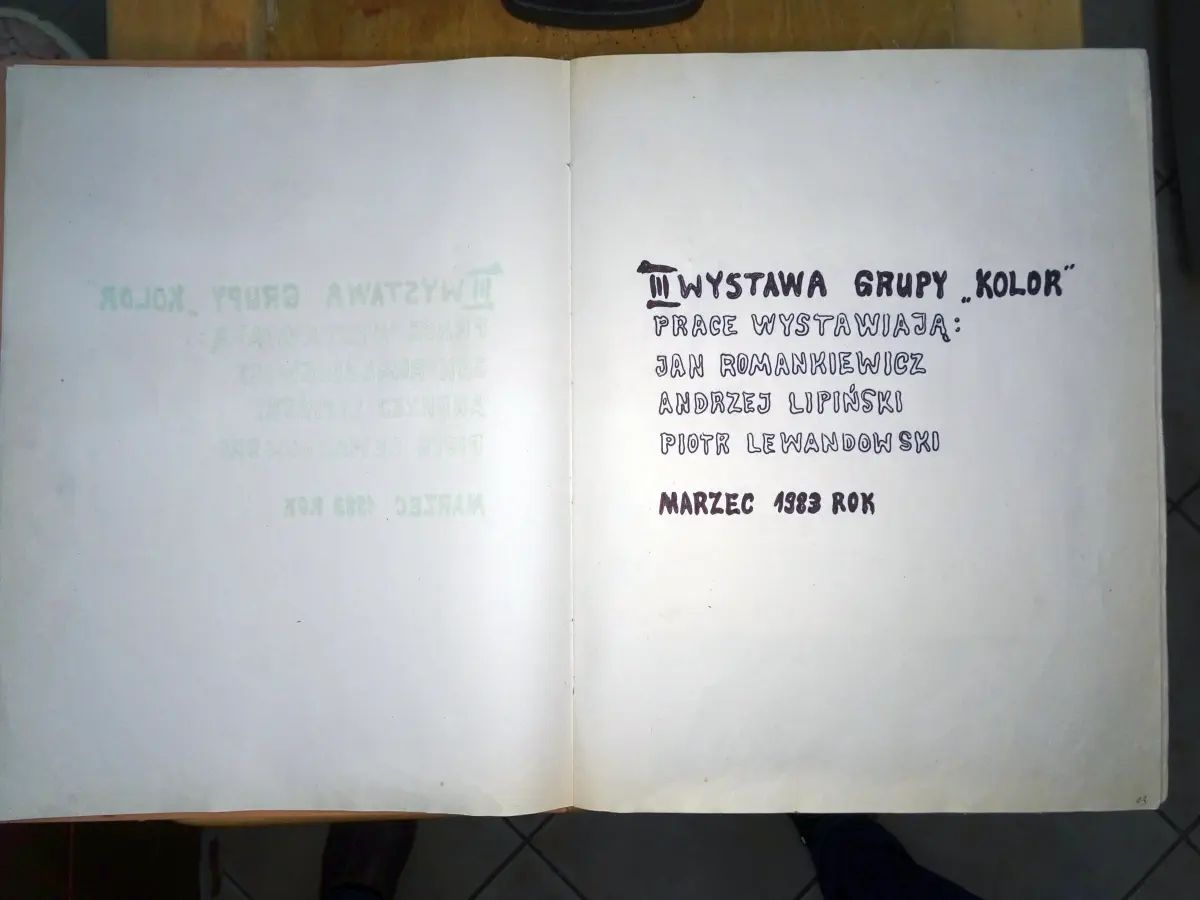 III WYSTAWA GRUPY „KOLOR”
PRACE WYSTAWIAJĄ:
JAN ROMANKIEWICZ
ANDRZEJ LIPIŃSKI
PIOTR LEWANDOWSKI
MARZEC 1983 ROK